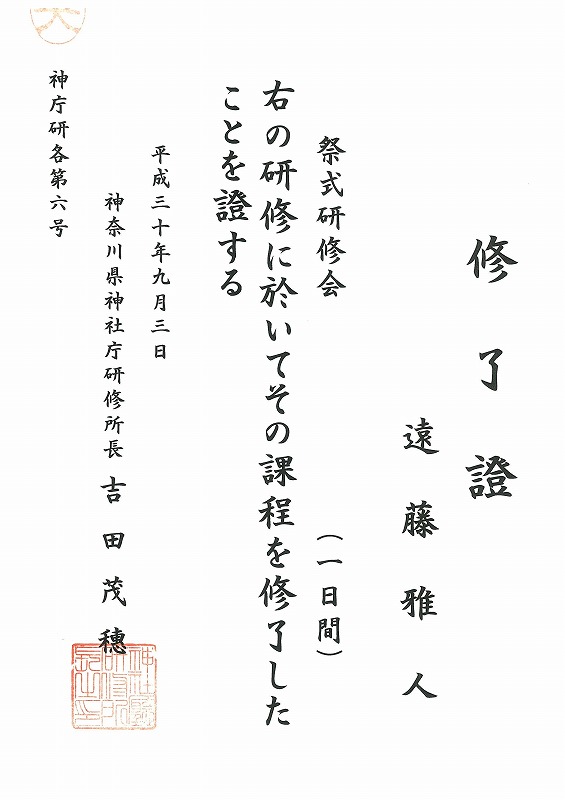 修了證
遠藤雅人
祭式研修会 (一日間)
右の研修に於いてその課程を修了した
ことを證する
平成三十年九月三日
神奈川県神社庁研修所長 吉田茂穗
神庁研各第六号